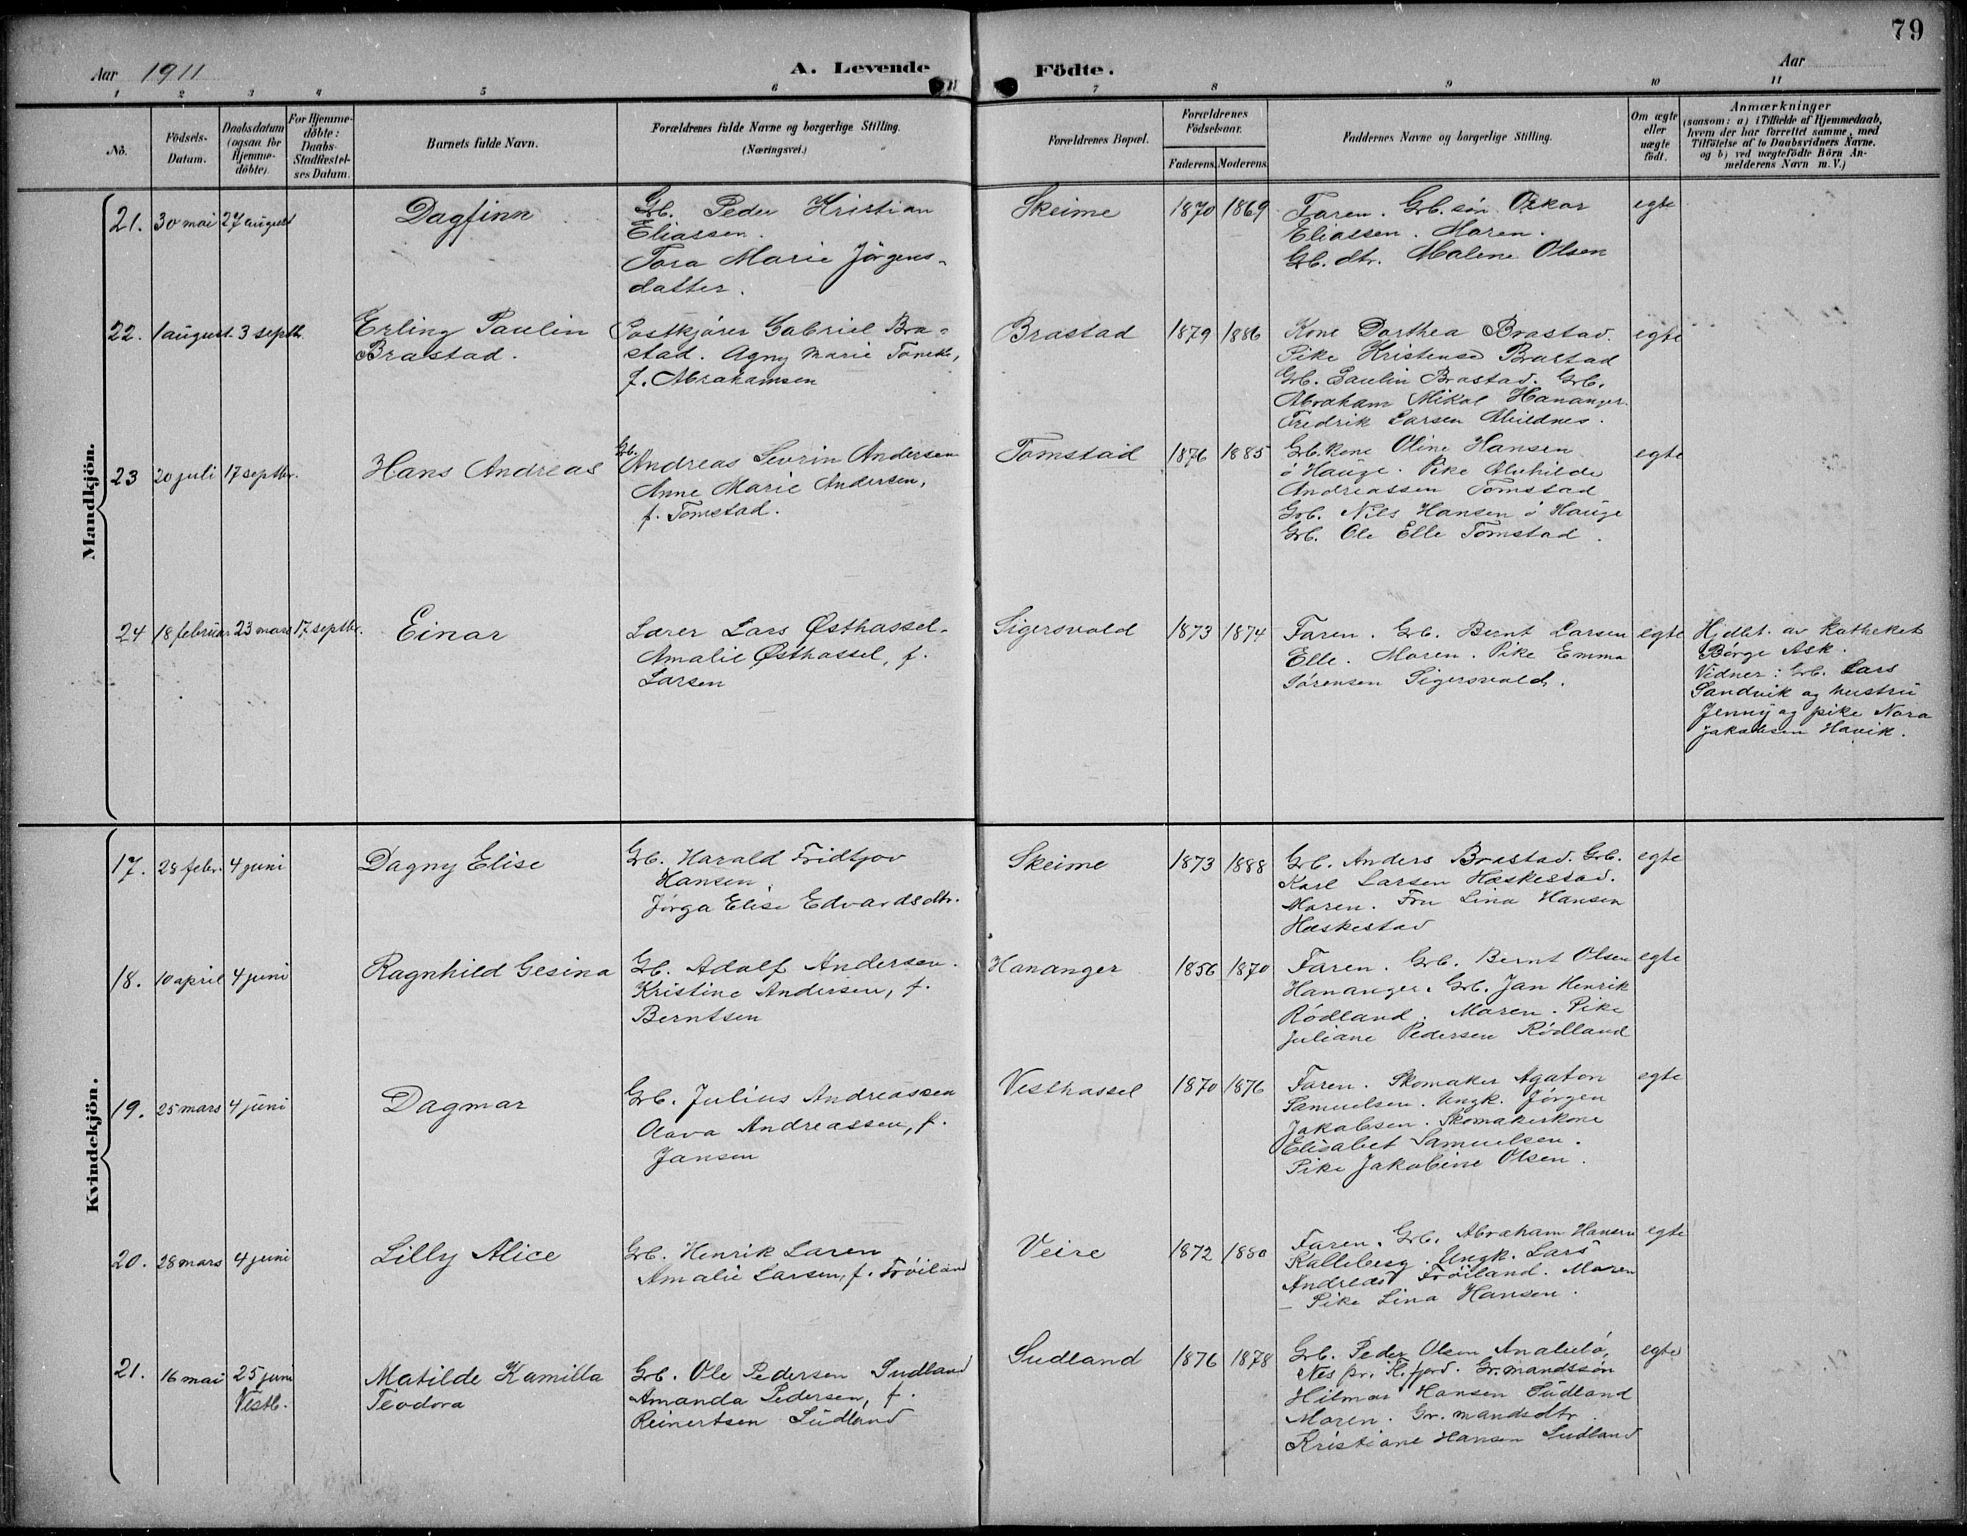 79
Aar 1911
A. Levende
Födte.
Aar
1 2 3 4 5 6 7 8 9 10 11
No.
Födsels-
Datum.
Daabsdatum
(ogsaa for
Hjemme-
døbte)
For Hjemme-
døbte:
Daabs-
Stadfæstel-
ses Datum.
Barnets fulde Navn.
Forældrenes fulde Navne og borgerlige Stilling.
(Næringsvei.)
Forældrenes Bopæl.
Forældrenes
Födselsaar.
Faderens. Moderens.
Faddernes Navne og borgerlige Stilling.
Om ægte
eller
uægte
født.
Anmærkninger
(saasom: a) i Tilfælde af Hjemmedaab,
hvem der har forrettet samme, med
Tilföielse af to Daabsvidners Navne.
og b) ved uægtefödte Börn An-
melderens Navn m. V.)
Mandkjön.
21. 30 mai 27 august
Dagfinn
Grb. Peder Kristian
Eliassen.
Tora Marie Jörgens-
datter.
Skeime
1870 1869
Faren. Grb. søn Oskar
Eliassen. Moren.
Grb. dtr. Malene Olsen
egte
22. 1 august 3 septb.
Erling Paulin
Brastad.
Postkjører Gabriel Bra-
stad. Agny Marie
f. Abrahamsen
Brastad
1879 1886
Kone Dorthea Brastad.
Pike Kristense Brastad
Grb. Paulin Brastad. Grb.
Abraham Mikal Hananger.
Fredrik Larsen
egte
23 20 juli 17 septbr.
Hans Andreas
Grb.
Andreas Sevrin Andersen
Anne Marie Andersen,
f. Tomstad.
Tomstad
1876 1885
Grb. kone Oline Hansen
ö Hauge. Pike Alvhilde
Andreassen Tomstad
Grb. Nils Hansen ö Hauge
Grb. Ole Elle Tomstad.
egte
24 18 februar 23 mars 17 septbr.
Einar
Lærer Lars Østhassel.
Amalie Østhassel, f.
Larsen
Sigersvold
1873 1874
Faren. Grb. Bernt Larsen
Elle. Moren. Pike Emma
Sørensen Sigersvold.
egte
Hjdbt. av Katheket
Børge Ask.
Vidner: Grb. Lars
Sandvik og hustru
Jenny og pike Nora
Jakobsen Havik.
Kvindekjön.
17. 28 febr. 4 juni
Dagny Elise
Grb. Harald Fridtjov
Hansen.
Jørga Elise Edvardsdtr.
Skeime
1873 1888
Grb. Anders Brastad. Grb.
Karl Larsen Hæskestad.
Moren. Fru Lina Hansen
Hæskestad
egte
18. 10 april 4 juni
Ragnhild Gesina
Grb. Adolf Andersen.
Kristine Andersen, f.
Berntsen
Hananger
1856 1870
Faren. Grb. Bernt Olsen
Hananger. Grb. Jan Henrik
Rødland. Moren. Pike
Juliane Pedersen Rødland
egte
19. 25 mars 4 juni
Dagmar
Grb. Julius Andreassen
Olava Andreassen, f.
Jansen
Vesthassel
1870 1876
Faren. Skomaker Agaton
Samuelsen. Ungk. Jörgen
Jakobsen. Skomakerkone
Elisabet Samuelsen.
Pike Jakobine Olsen.
egte
20. 28 mars 4 juni
Lilly Alice
Grb. Henrik Larsen
Amalie Larsen, f. Frøiland
Veire
1872 1880
Faren. Grb. Abraham Hansen
Kalleberg. Ungk. Lars
Andreas Frøiland. Moren
– Pike Lina Hansen.
egte
21. 16 mai 25 juni
Vestb.
Matilde Kamilla
Teodora
Grb. Ole Pedersen Sudland
Amanda Pedersen, f.
Reinertsen Sudland
Sudland
1876 1878
Grb. Peder Olsen
Nes pr. Fl.fjord. Gr.mandssön
Hilmar Hansen Sudland
Moren. Gr. mandsdtr.
Kristiane Hansen Sudland
egte